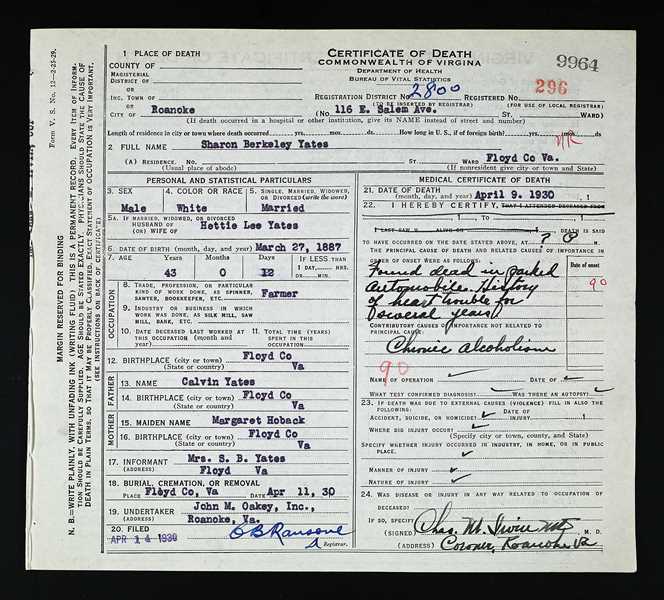 Form V. S. No. 12—2-25-29.
MARGIN RESERVED FOR BINDING
N. B.—WRITE PLAINLY, WITH UNFADING INK (WRITING FLUID) THIS IS A PERMANENT RECORD. EVERY ITEM OF INFORM-
ATION SHOULD BE CAREFULLY SUPPLIED. AGE SHOULD BE STATED EXACTLY. PHYSICIANS SHOULD STATE THE CAUSE OF
DEATH IN PLAIN TERMS, SO THAT IT MAY BE PROPERLY CLASSIFIED. EXACT STATEMENT OF OCCUPATION IS VERY IMPORTANT.
(SEE INSTRUCTIONS ON BACK OF CERTIFICATE)
1 PLACE OF DEATH
COUNTY OF
MAGISTERIAL
DISTRICT OF
OR
INC. TOWN OF
OR
CITY OF Roanoke
CERTIFICATE OF DEATH
COMMONWEALTH OF VIRGINIA
DEPARTMENT OF HEALTH
BUREAU OF VITAL STATISTICS
9964
296
REGISTRATION DISTRICT NO. 2800 REGISTERED NO.
(TO BE INSERTED BY REGISTRAR) (FOR USE OF LOCAL REGISTRAR)
(No. 116 E. Salem Ave. ST. WARD)
(If death occurred in a hospital or other institution, give its NAME instead of street and number)
Length of residence in city or town where death occurred yrs. mos. ds. How long in U. S., if of foreign birth? yrs. mos. ds.
NR
2 FULL NAME Sharon Berkeley Yates
(A) RESIDENCE. No. ST. WARD Floyd Co Va.
(Usual place of abode) (If nonresident give city or town and State)
PERSONAL AND STATISTICAL PARTICULARS
3. SEX 4. COLOR OR RACE 5. SINGLE, MARRIED, WIDOWED,
OR DIVORCED (write the word)
Male White Married
5A. IF MARRIED, WIDOWED, OR DIVORCED
HUSBAND OF
(OR) WIFE OF Hettie Lee Yates
6. DATE OF BIRTH (month, day, and year) March 27, 1887
7. AGE Years Months Days IF LESS THAN
1 DAY, HRS.
OR MIN.
43 0 12
OCCUPATION
8. TRADE, PROFESSION, OR PARTICULAR
KIND OF WORK DONE, AS SPINNER,
SAWYER, BOOKKEEPER, ETC. Farmer
9. INDUSTRY OR BUSINESS IN WHICH
WORK WAS DONE, AS SILK MILL, SAW
MILL, BANK, ETC.
10. DATE DECEASED LAST WORKED AT
THIS OCCUPATION (month and
year)
11. TOTAL TIME (YEARS)
SPENT IN THIS
OCCUPATION
12. BIRTHPLACE (city or town) Floyd Co
(State or country) Va
FATHER
13. NAME Calvin Yates
14. BIRTHPLACE (city or town) Floyd Co
(State or country) Va
MOTHER
15. MAIDEN NAME Margaret Hoback
16. BIRTHPLACE (city or town) Floyd Co
(State or country) Va
17. INFORMANT Mrs. S. B. Yates
(ADDRESS) Floyd Va
18. BURIAL, CREMATION, OR REMOVAL
PLACE Floyd Co, Va DATE Apr 11, 30
19. UNDERTAKER John M. Oakey, Inc.,
(ADDRESS) Roanoke, Va.
20. FILED
APR 14 1930 Registrar.
MEDICAL CERTIFICATE OF DEATH
21. DATE OF DEATH
(month, day, and year) April 9. 1930, 1
22. I HEREBY CERTIFY, THAT I ATTENDED DECEASED FROM
, 1 , TO , 1
I LAST SAW H ALIVE ON , DEATH IS SAID
TO HAVE OCCURRED ON THE DATE STATED ABOVE, AT ? M.
THE PRINCIPAL CAUSE OF DEATH AND RELATED CAUSES OF IMPORTANCE IN
ORDER OF ONSET WERE AS FOLLOWS:
Date of onset
Found dead in parked
Automobile. History
of heart trouble for
several years
90
CONTRIBUTORY CAUSES OF IMPORTANCE NOT RELATED TO
PRINCIPAL CAUSE:
Chronic alcoholism
90
NAME OF OPERATION DATE OF
WHAT TEST CONFIRMED DIAGNOSIS? WAS THERE AN AUTOPSY?
23. IF DEATH WAS DUE TO EXTERNAL CAUSES (VIOLENCE) FILL IN ALSO THE
FOLLOWING:
ACCIDENT, SUICIDE, OR HOMICIDE? DATE OF
INJURY 1
WHERE DID INJURY OCCUR?
(Specify city or town, county, and State)
SPECIFY WHETHER INJURY OCCURRED IN INDUSTRY, IN HOME, OR IN PUBLIC
PLACE.
MANNER OF INJURY
NATURE OF INJURY
24. WAS DISEASE OR INJURY IN ANY WAY RELATED TO OCCUPATION OF
DECEASED?
IF SO, SPECIFY
(SIGNED) Chas. M. Irvin M.D. M. D.
(ADDRESS) Coroner, Roanoke Va